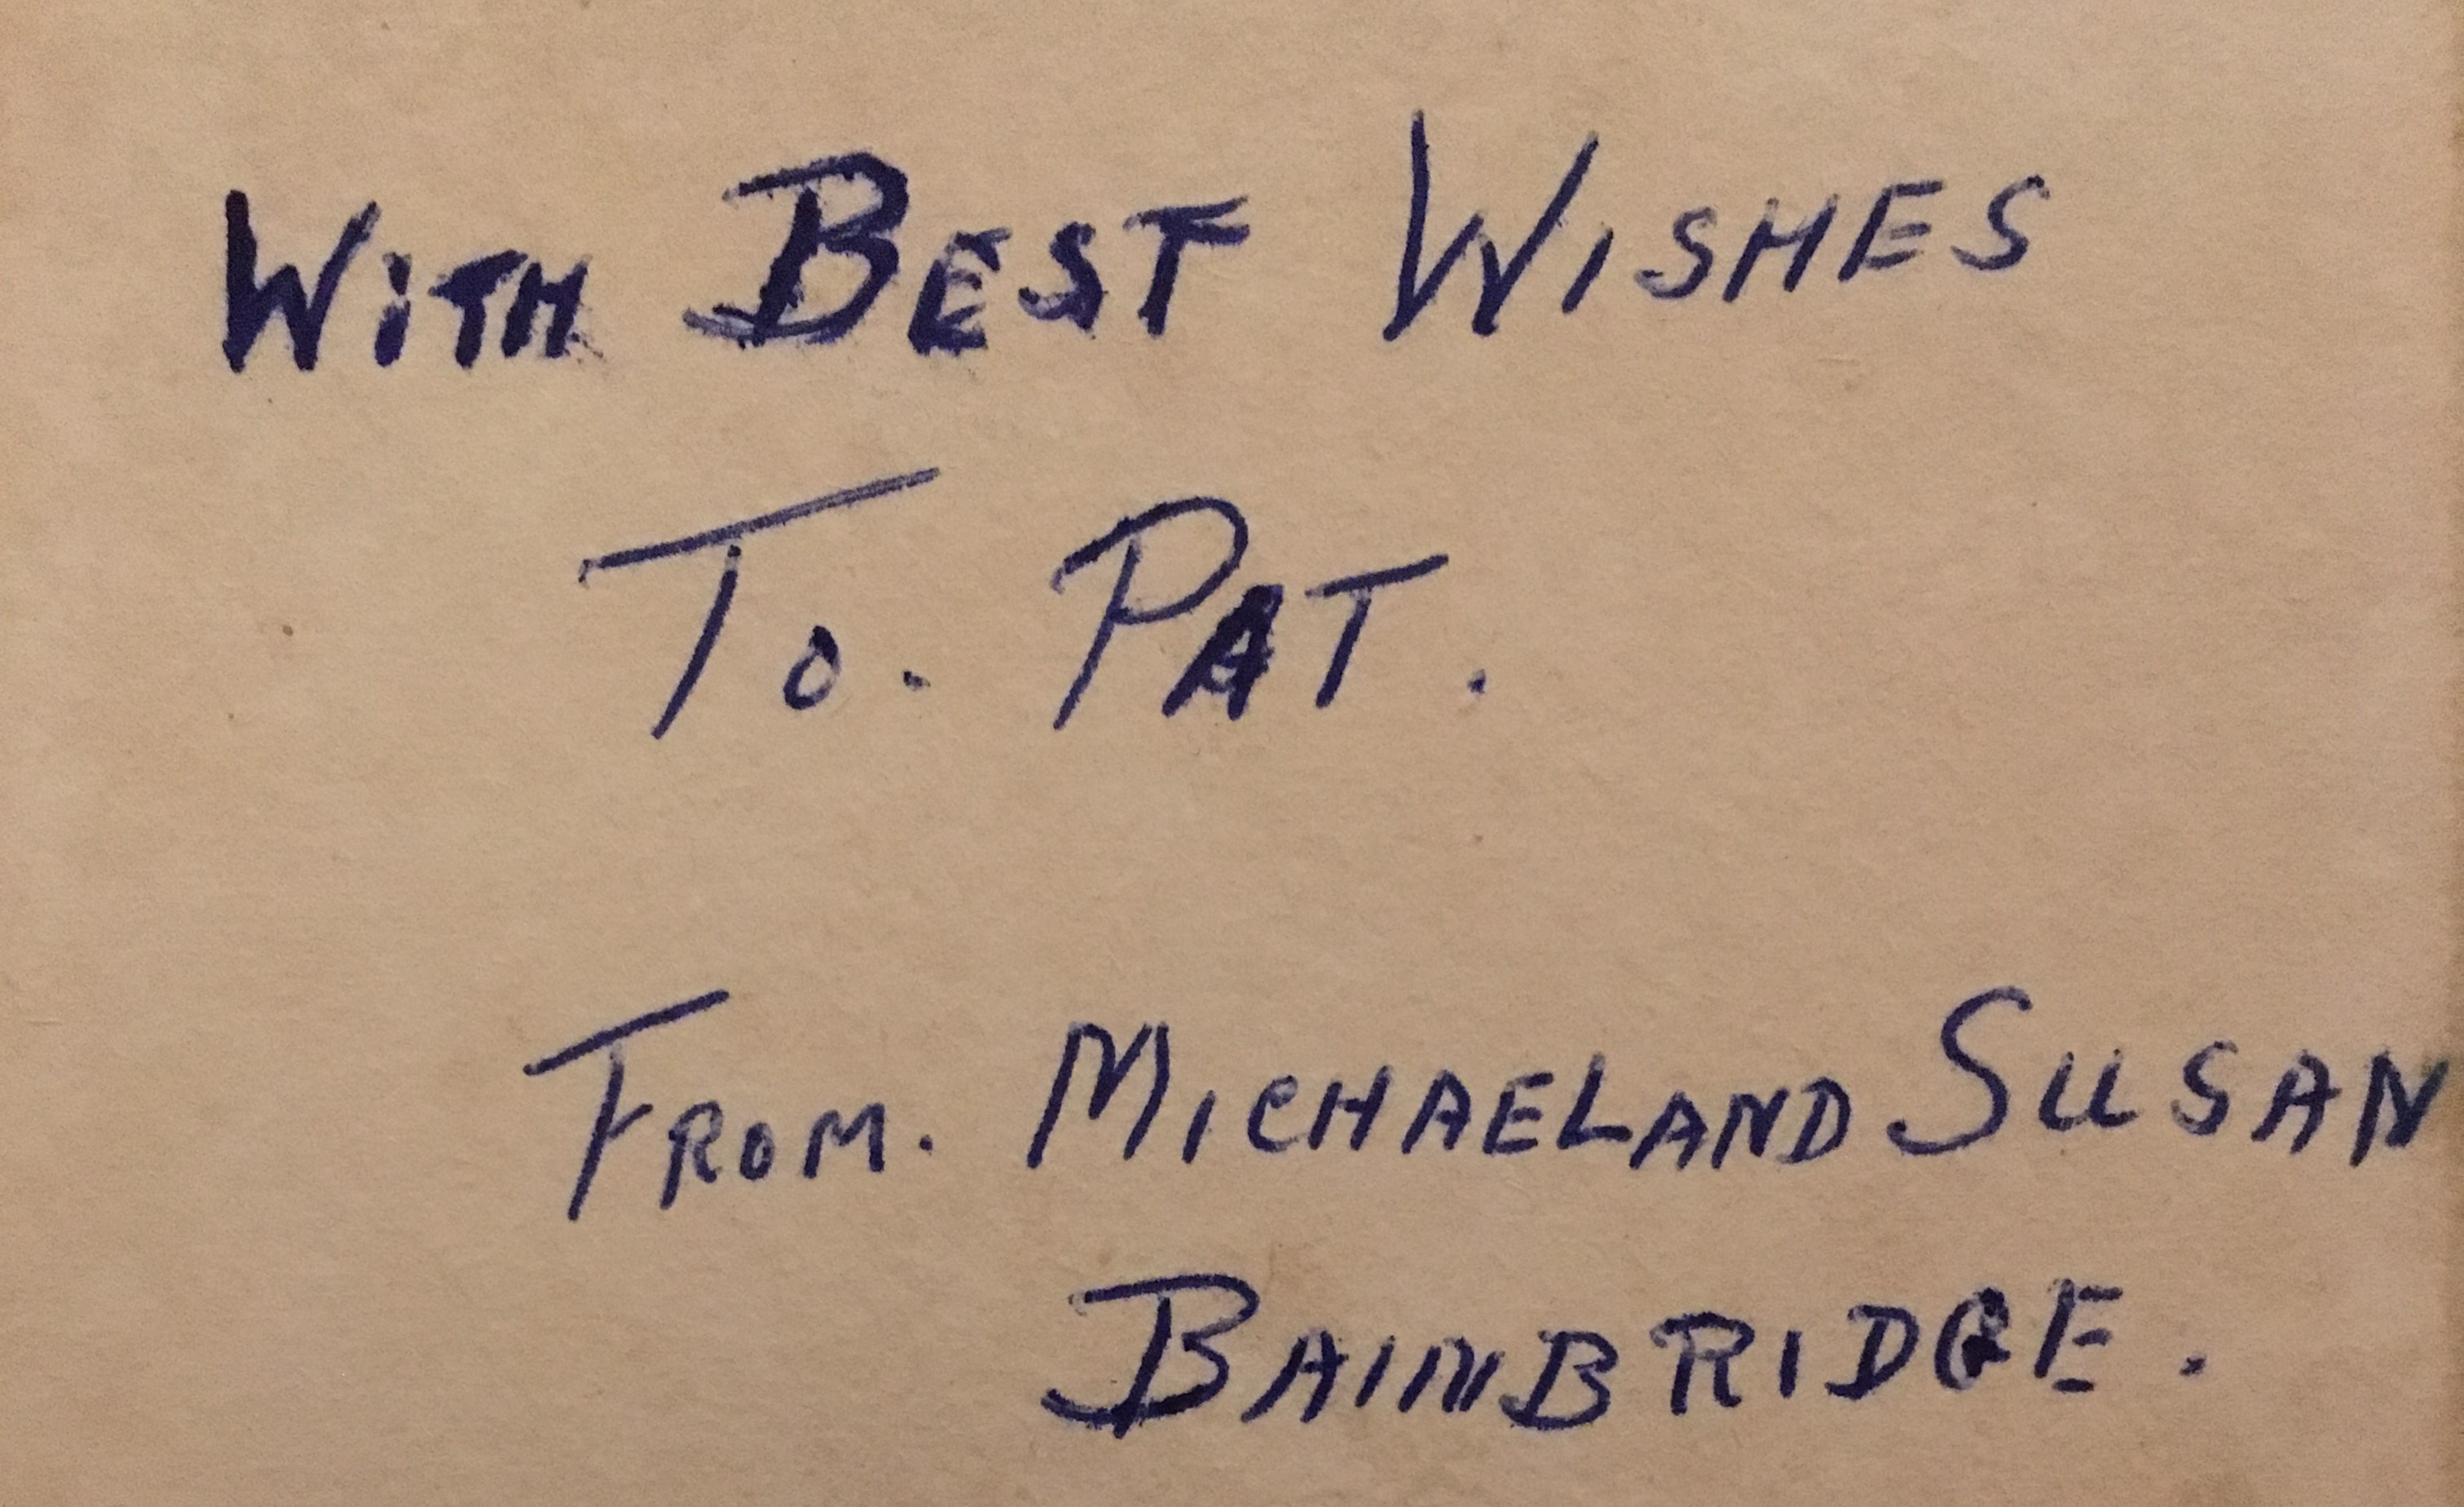 WITH BEST WISHES
TO. PAT.
FROM. MICHAEL AND SUSAN
BAINBRIDGE.